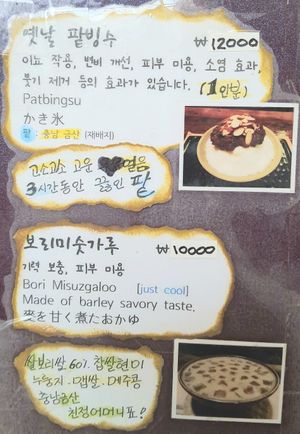 옛날 팥빙수 ₩12000
이뇨 작용, 변비 개선, 피부 미용, 소염 효과,
붓기 제거 등의 효과가 있습니다. (1인분)
Patbingsu
かき氷
팥 : 충남 금산 (재배지)
고소고소 고운 얼음
3시간동안 끓인 팥
보리미숫가루 ₩10000
기력 보충, 피부 미용
Bori Misuzgaloo [just cool]
Made of barley savory taste.
麥を甘く煮たおかゆ
쌀보리쌀 60%. 찹쌀현미
누룽지. 맵쌀. 메주콩
충남금산
친정어머니표!